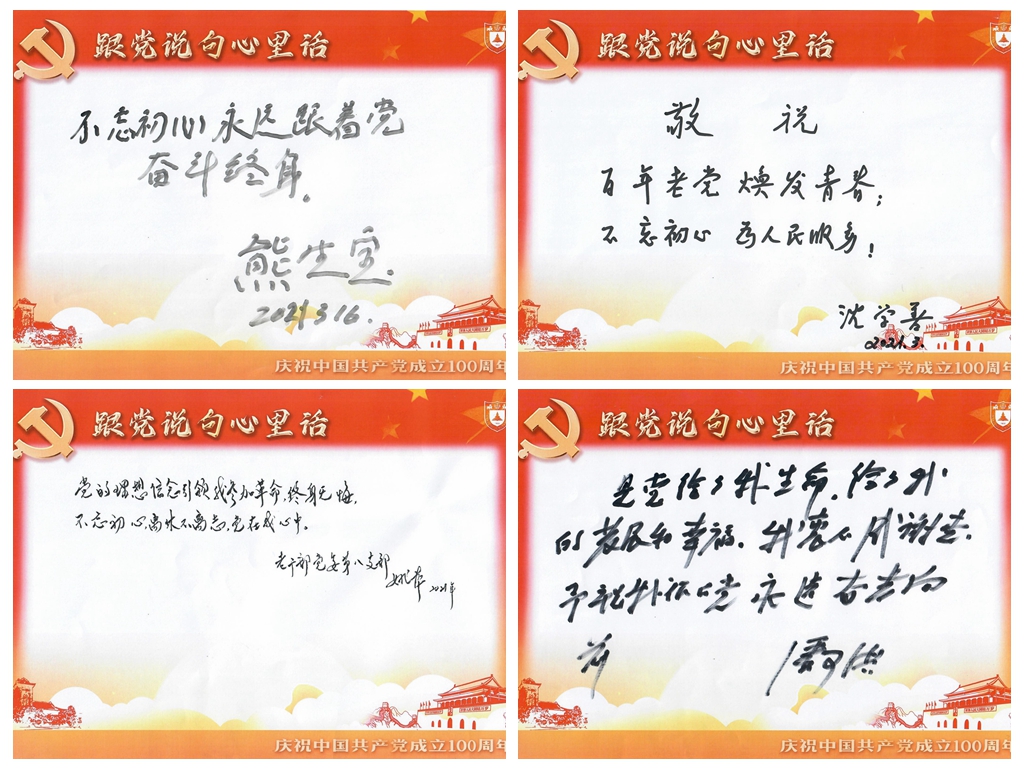 跟党说句心里话
不忘初心永远跟着党
奋斗终身。
熊生宝.
2021 3 16.
庆祝中国共产党成立100周年
跟党说句心里话
敬 祝
百年老党焕发青春;
不忘初心 为人民服务!
沈学善
2021.3.
庆祝中国共产党成立100周年
跟党说句心里话
党的理想信念引领我参加革命,终身无悔,
不忘初心离休不离志,党在我心中。
老干部党委第八支部
2021年
庆祝中国共产党成立100周年
跟党说句心里话
是党给了我生命,给了我
的发展和幸福.我衷心感谢党.
党 永远奋勇向
前
庆祝中国共产党成立100周年